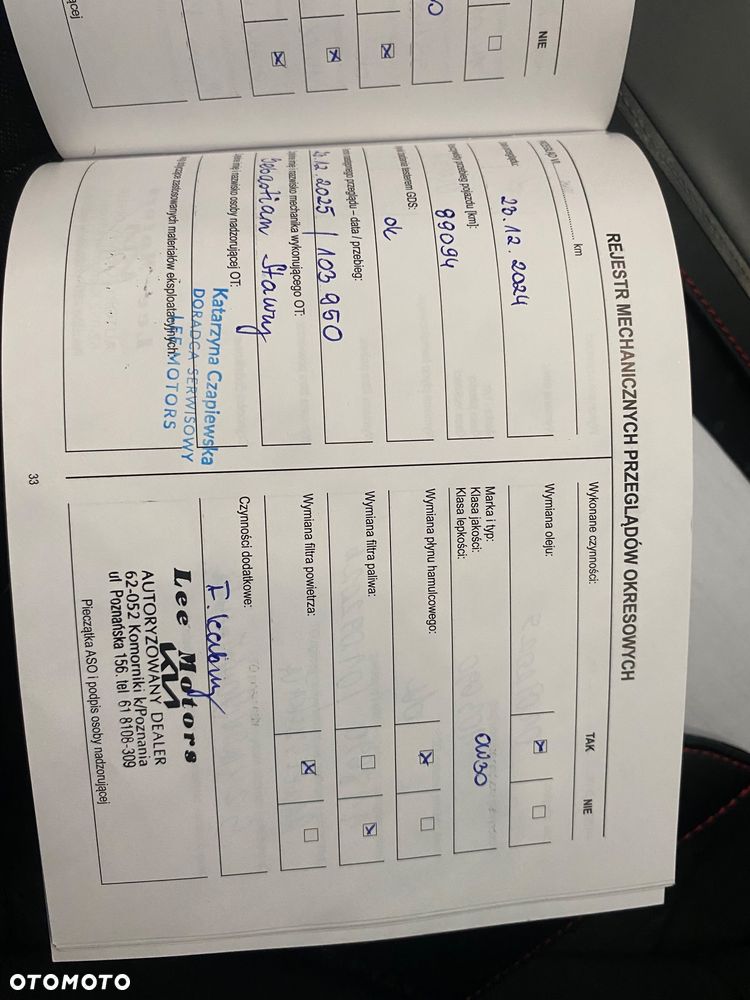 NIE
REJESTR MECHANICZNYCH PRZEGLĄDÓW OKRESOWYCH
km
23.12.2024
przebieg pojazdu [km]:
89094
testerem GDS:
ok
przeglądu – data / przebieg:
12.2025 / 103 950
nazwisko mechanika wykonującego OT:
Sebastian Stawny
nazwisko osoby nadzorującej OT:
Katarzyna Czapiewska
DORADCA SERWISOWY
LEE MOTORS
zastosowanych materiałów eksploatacyjnych:
Wykonane czynności:
TAK
NIE
Wymiana oleju:
Marka i typ:
Klasa jakości:
Klasa lepkości:
0W30
Wymiana płynu hamulcowego:
Wymiana filtra paliwa:
Wymiana filtra powietrza:
Czynności dodatkowe:
F. kabiny
Lee Motors
KIA
AUTORYZOWANY DEALER
62-052 Komorniki k/Poznania
ul Poznańska 156. tel 61 8108-309
Pieczątka ASO i podpis osoby nadzorującej
33
OTOMOTO